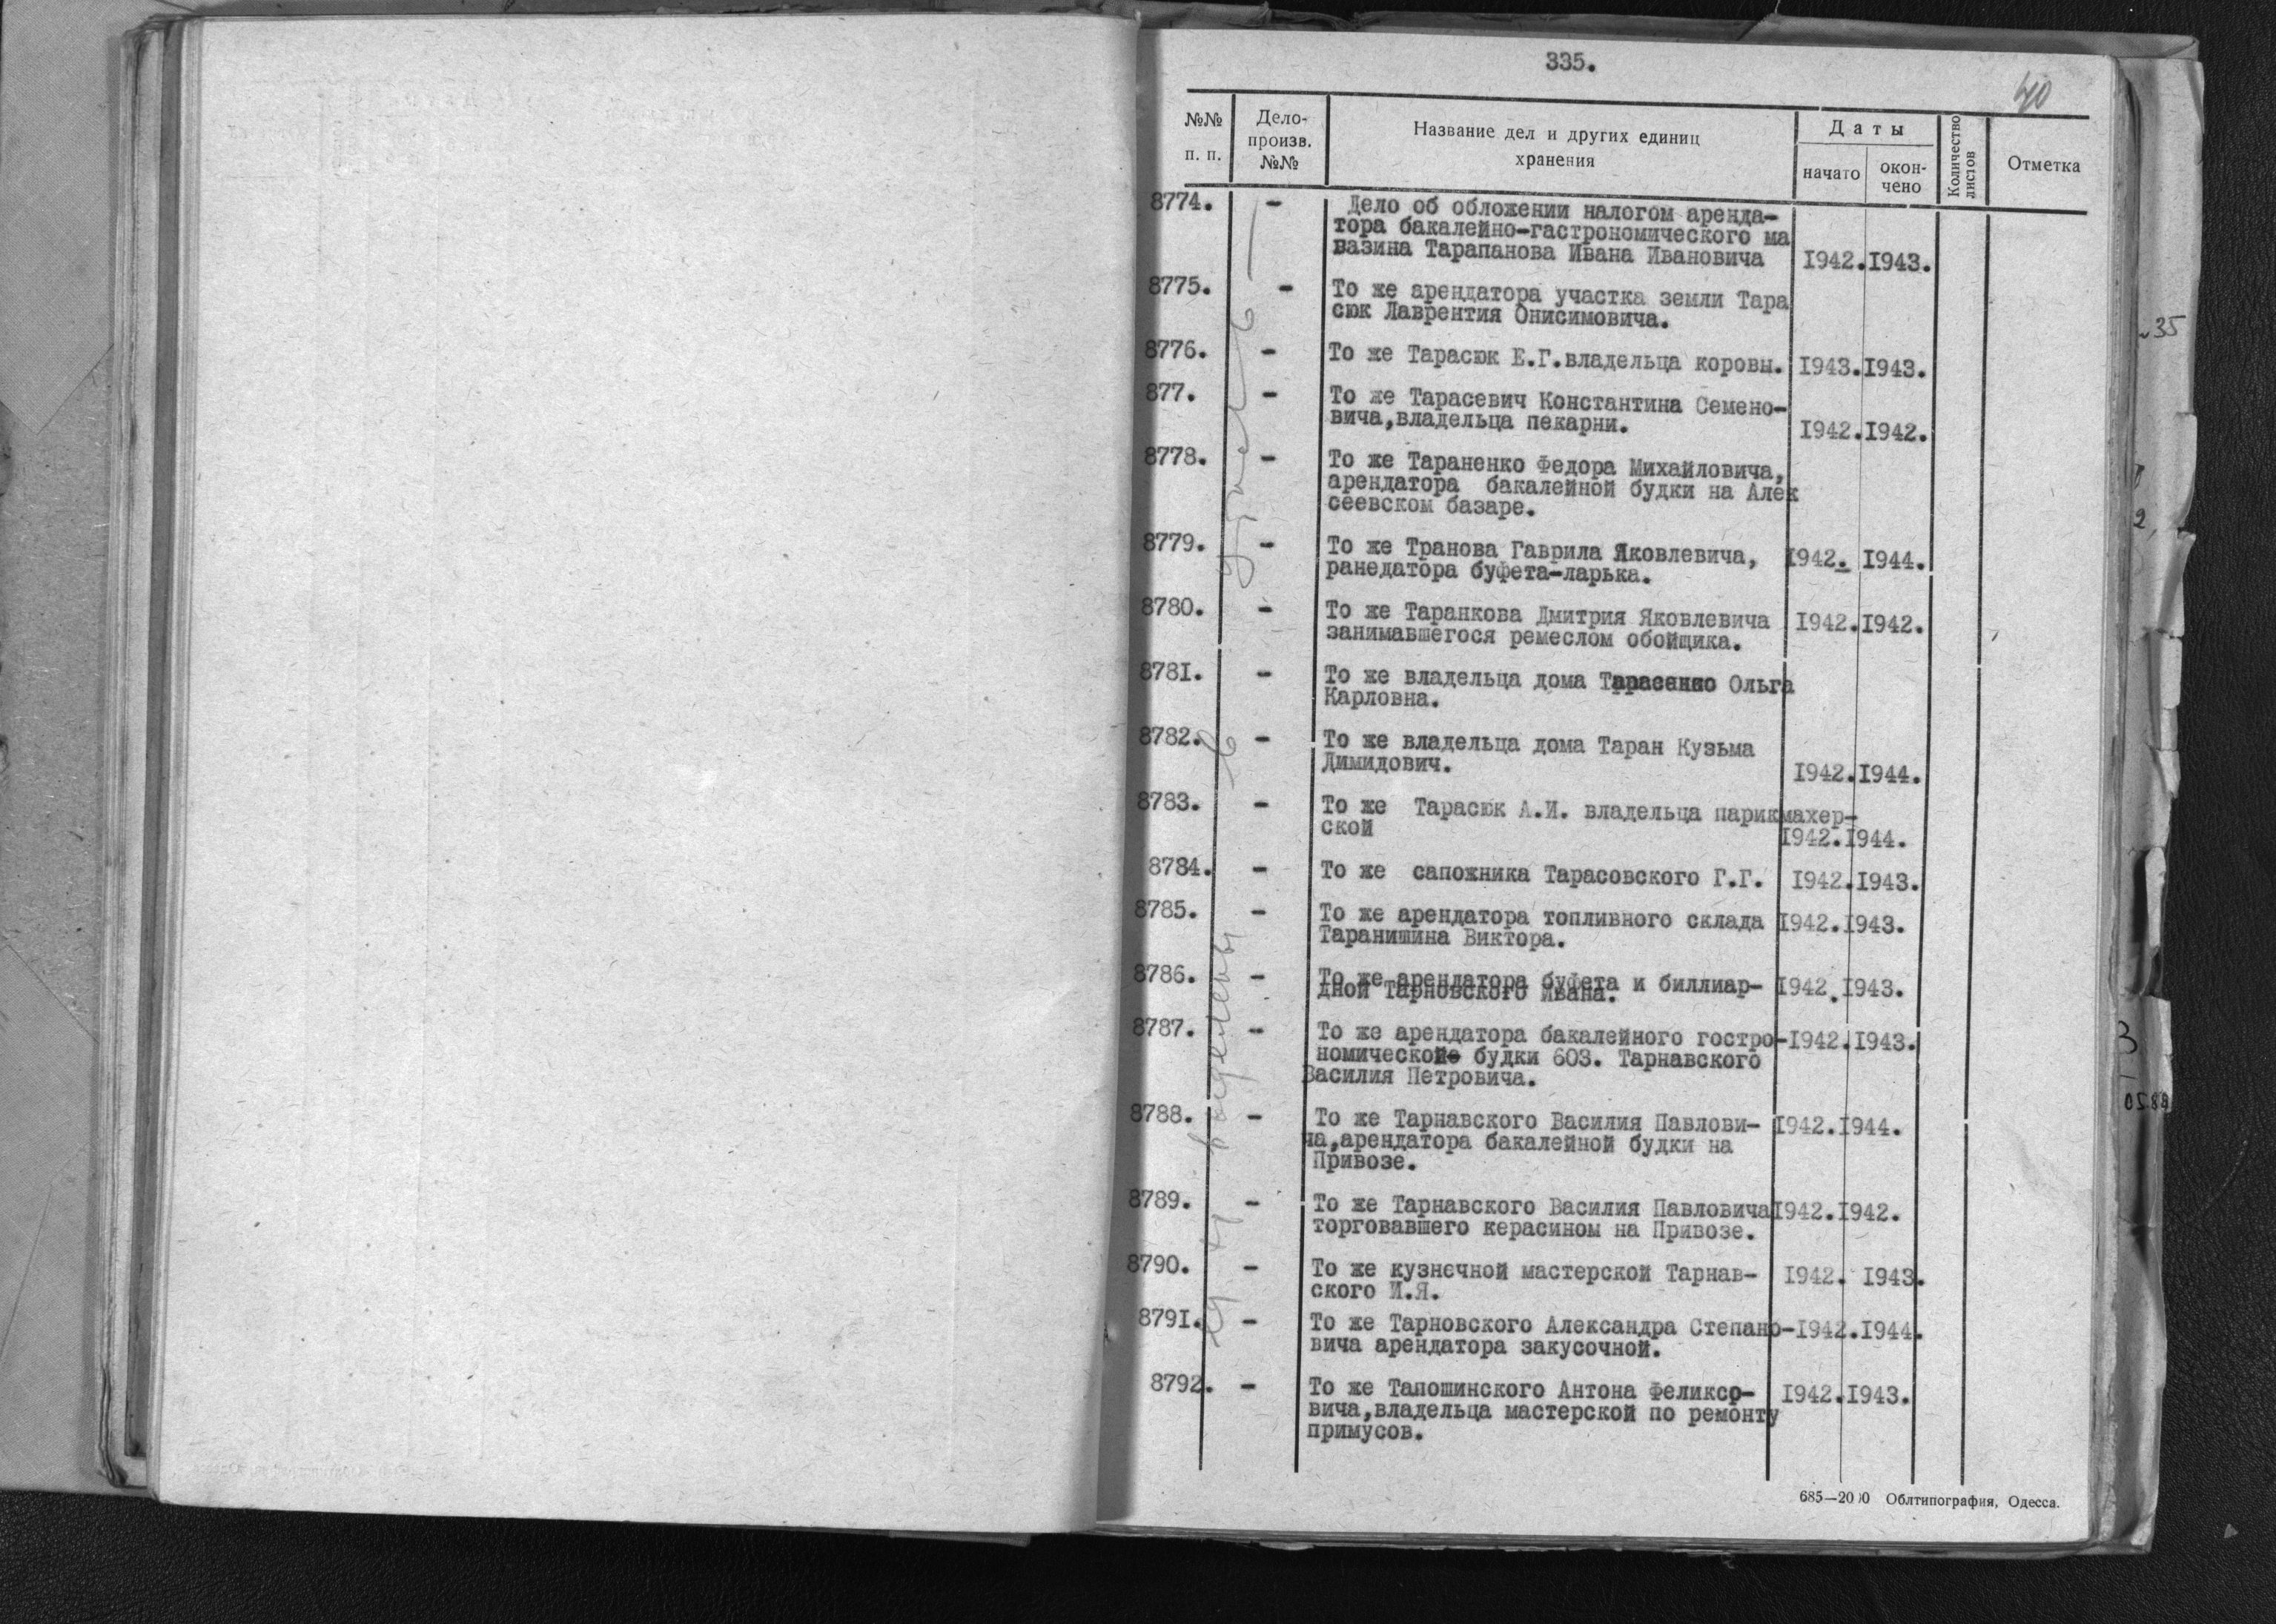 335.
40
№№ п. п.
Дело-произв. №№
Название дел и других единиц хранения
Даты
начато
окон-чено
Количество листов
Отметка
8774. - Дело об обложении налогом аренда-
тора бакалейно-гастрономического ма
вазина Тарапанова Ивана Ивановича 1942. 1943.
8775. - То же арендатора участка земли Тара
сюк Лаврентия Онисимовича.
8776. - То же Тарасюк Е.Г.владельца коровы. 1943. 1943.
877. - То же Тарасевич Константина Семено-
вича,владельца пекарни. 1942. 1942.
8778. - То же Тараненко Федора Михайловича,
арендатора бакалейной будки на Алек
сеевском базаре.
8779. - То же Транова Гаврила Яковлевича, 1942. 1944.
ранедатора буфета-ларька.
8780. - То же Таранкова Дмитрия Яковлевича 1942. 1942.
занимавшегося ремеслом обойщика.
8781. - То же владельца дома Тарасенко Ольга
Карловна.
8782. - То же владельца дома Таран Кузьма
Димидович. 1942. 1944.
8783. - То же Тарасюк А.И. владельца парикмахер-
ской 1942. 1944.
8784. - То же сапожника Тарасовского Г.Г. 1942. 1943.
8785. - То же арендатора топливного склада 1942. 1943.
Таранишина Виктора.
8786. - То же арендатора буфета и биллиар- 1942. 1943.
дной Тарновского Ивана.
8787. - То же арендатора бакалейного гостро- 1942. 1943.
номической будки 603. Тарнавского
Василия Петровича.
8788. - То же Тарнавского Василия Павлови- 1942. 1944.
ча,арендатора бакалейной будки на
Привозе.
8789. - То же Тарнавского Василия Павловича 1942. 1942.
торговавшего керасином на Привозе.
8790. - То же кузнечной мастерской Тарнав- 1942. 1943.
ского И.Я.
8791. - То же Тарновского Александра Степано- 1942. 1944.
вича арендатора закусочной.
8792. - То же Тапошинского Антона Феликсо- 1942. 1943.
вича,владельца мастерской по ремонту
примусов.
685—2000 Облтипография, Одесса.
35
2
3